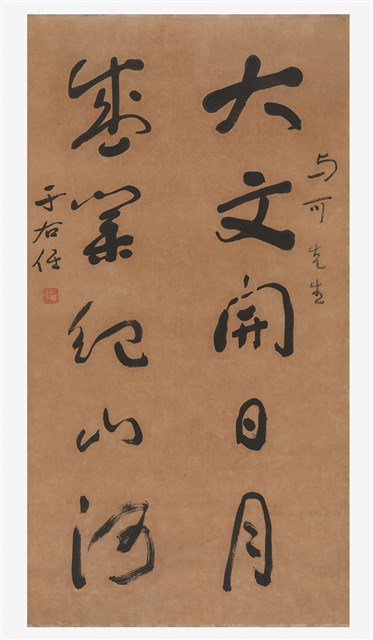 与可先生
大文開日月
盛業紀山河
于右任